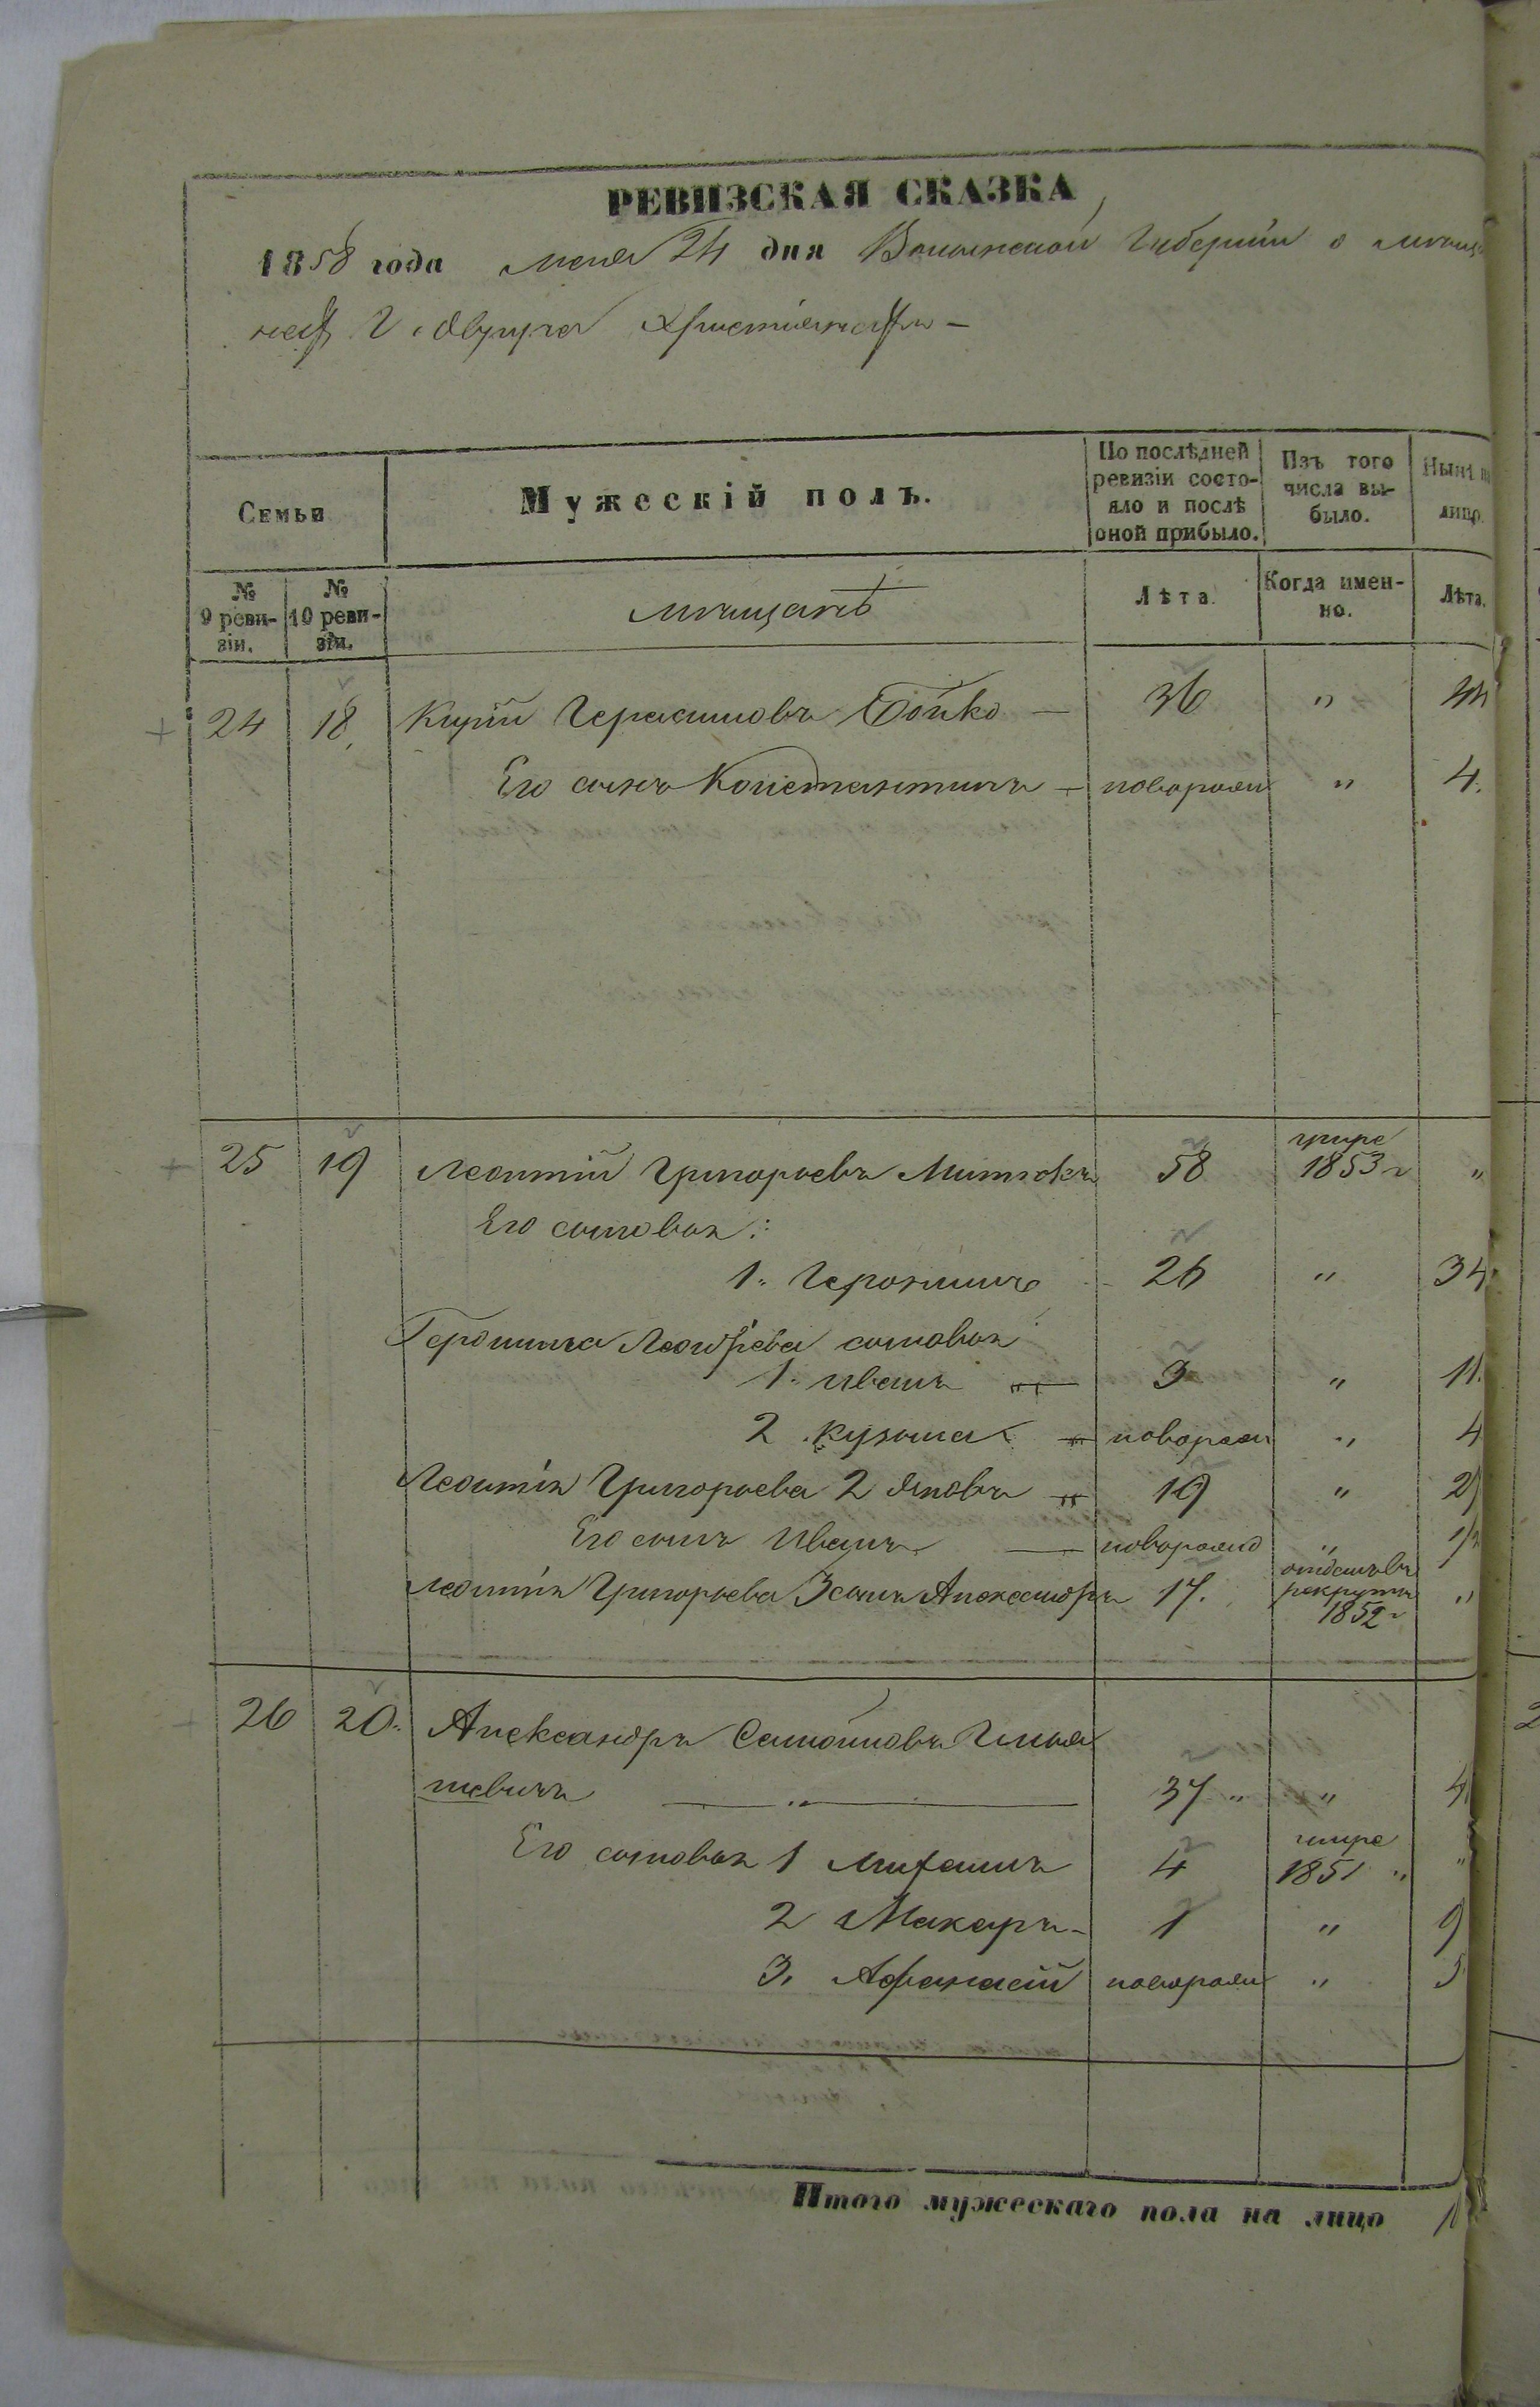 РЕВИЗСКАЯ СКАЗКА
1858 года мая 24 дня Волынской Губернии о мѣща
нахъ Г. Овруча Христіанахъ –
Семьи
Мужескій полъ.
По послѣдней ревизіи состо-
яло и послѣ
оной прибыло.
Изъ того
числа вы-
было.
Нынѣ на
лицо.
№
9 реви-
зіи.
№
10 реви-
зіи.
мѣщанѣ
Лѣта.
Когда имен-
но.
Лѣта.
24 18 Герасимовъ Бойко — 36 " 44
Его сынъ Константинъ – новорожд " 4.
25 19 Леонтій Григорьевъ Митюкъ 58 умре 1853 г "
Его сыновья:
1. Геронимъ 26 " 34
Геронима Леонтьева сыновья
1. Иванъ " 3 " 11.
2. Кузьма новорож " 4
Леонтія Григорьева 2 Яковъ " 19 "
Его сынъ Иванъ — новорожд "
Леонтія Григорьева 3 сынъ Александръ 17. отданъ въ рекруты 1852 г "
26 20. Александръ Самойловъ Гнья
тевичъ " 37 " "
Его сыновья 1 Михаилъ 4 умре 1851 " "
2 Макаръ – 1 " 9
3. Афанасій новорожд " 5
Итого мужескаго пола на лицо